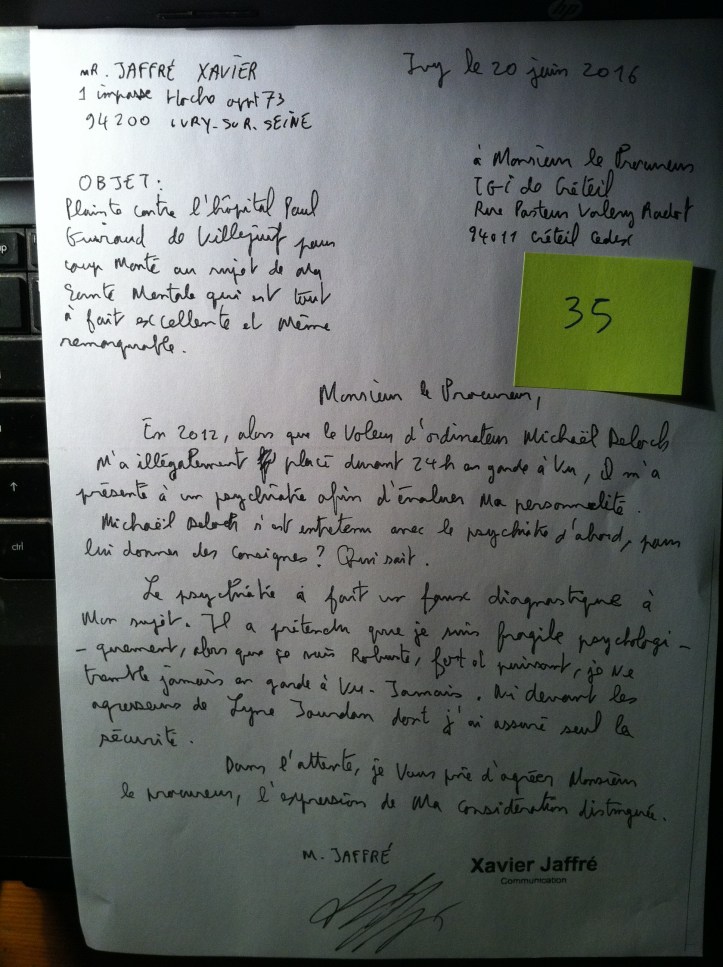 MR. JAFFRÉ XAVIER
1 impasse Hoche appt 73
94200 IVRY-SUR-SEINE
Ivry le 20 juin 2016
à Monsieur le Procureur
TGI de Créteil
Rue Pasteur Valery Radot
94011 Créteil Cedex
OBJET:
Plainte contre l'hôpital Paul
Guiraud de Villejuif pour
coup Monté au sujet de Ma
Santé Mentale qui est tout
à fait excellente et Même
remarquable.
35
Monsieur le Procureur,
En 2012, alors que le Voleur d'ordinateur Michaël Deloch
M'a illégalement placé durant 24h en garde à Vu, il m'a
présenté à un psychiatre afin d'évaluer Ma personnalité.
Michaël Deloch s'est entretenu avec le psychiatre d'abord, pour
lui donner des Consignes? Qui sait.
Le psychiatre à fait un faux diagnostique à
Mon sujet. Il a prétendu que je suis fragile psychologi-
-quement, alors que je suis Robuste, fort et puissant, je Ne
tremble jamais en garde à Vu. Jamais. Ni devant les
agresseurs de Lyne Jourdan dont j'ai assuré seul la
sécurité.
Dans l'attente, je Vous prie d'agréer Monsieur
le procureur, l'expression de Ma Considération distinguée.
M. JAFFRÉ
Xavier Jaffré
Communication